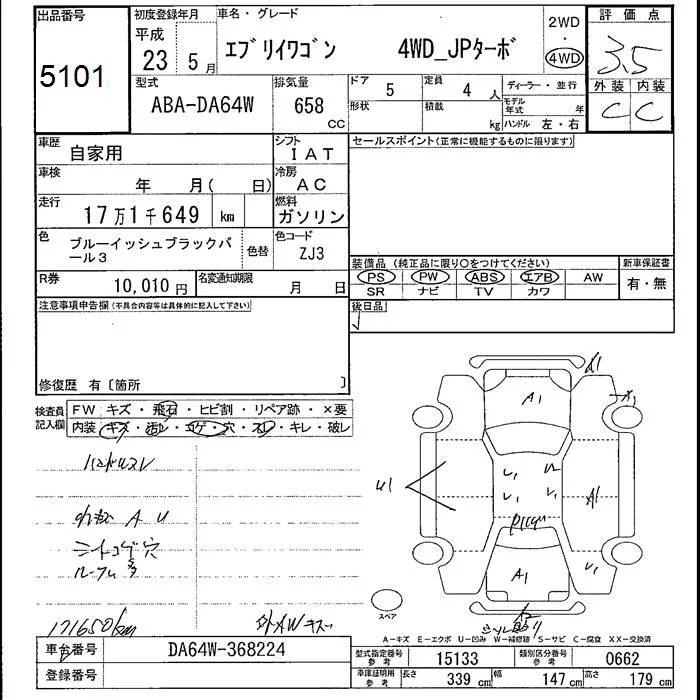 出品番号 初度登録年月 車名・グレード 評価点
5101 平成 23 5月 エブリイワゴン 4WD_JPターボ 2WD・4WD 3.5
外装 内装
C C
型式 排気量 ドア 5 定員 4人 ディーラー・並行
ABA-DA64W 658 CC 形状 積載 kg モデル年式 年
ハンドル 左・右
車歴 自家用 シフト IAT セールスポイント(正常に機能するものに限ります)
車検 年 月( 日) 冷房 AC
走行 17万1千649 km 燃料 ガソリン
色 ブルーイッシュブラックパール3 色替 色コード ZJ3
装備品(純正品に限り○をつけてください) 新車保証書
PS PW ABS エアB AW 有・無
SR ナビ TV カワ
R券 10,010円 名変通知期限 月 日
後日品
注意事項申告欄(不具合内容等は具体的に記入して下さい)
修復歴 有〔箇所 〕
検査員記入欄 FW キズ・飛石・ヒビ割・リペア跡・×要
内装 キズ・汚レ・コゲ・穴・スレ・キレ・破レ
ハンドルスレ
A U
シートコゲ穴
171650km
外AWキズ
A1
A1
A1
A1
U1
スペア
A-キズ E-エクボ U-凹み W-補修跡 S-サビ C-腐食 XX-交換済
車台番号 DA64W-368224
登録番号
型式指定番号 参考 15133 類別区分番号 参考 0662
車庫証明用 参考 長さ 339 cm 幅 147 cm 高さ 179 cm